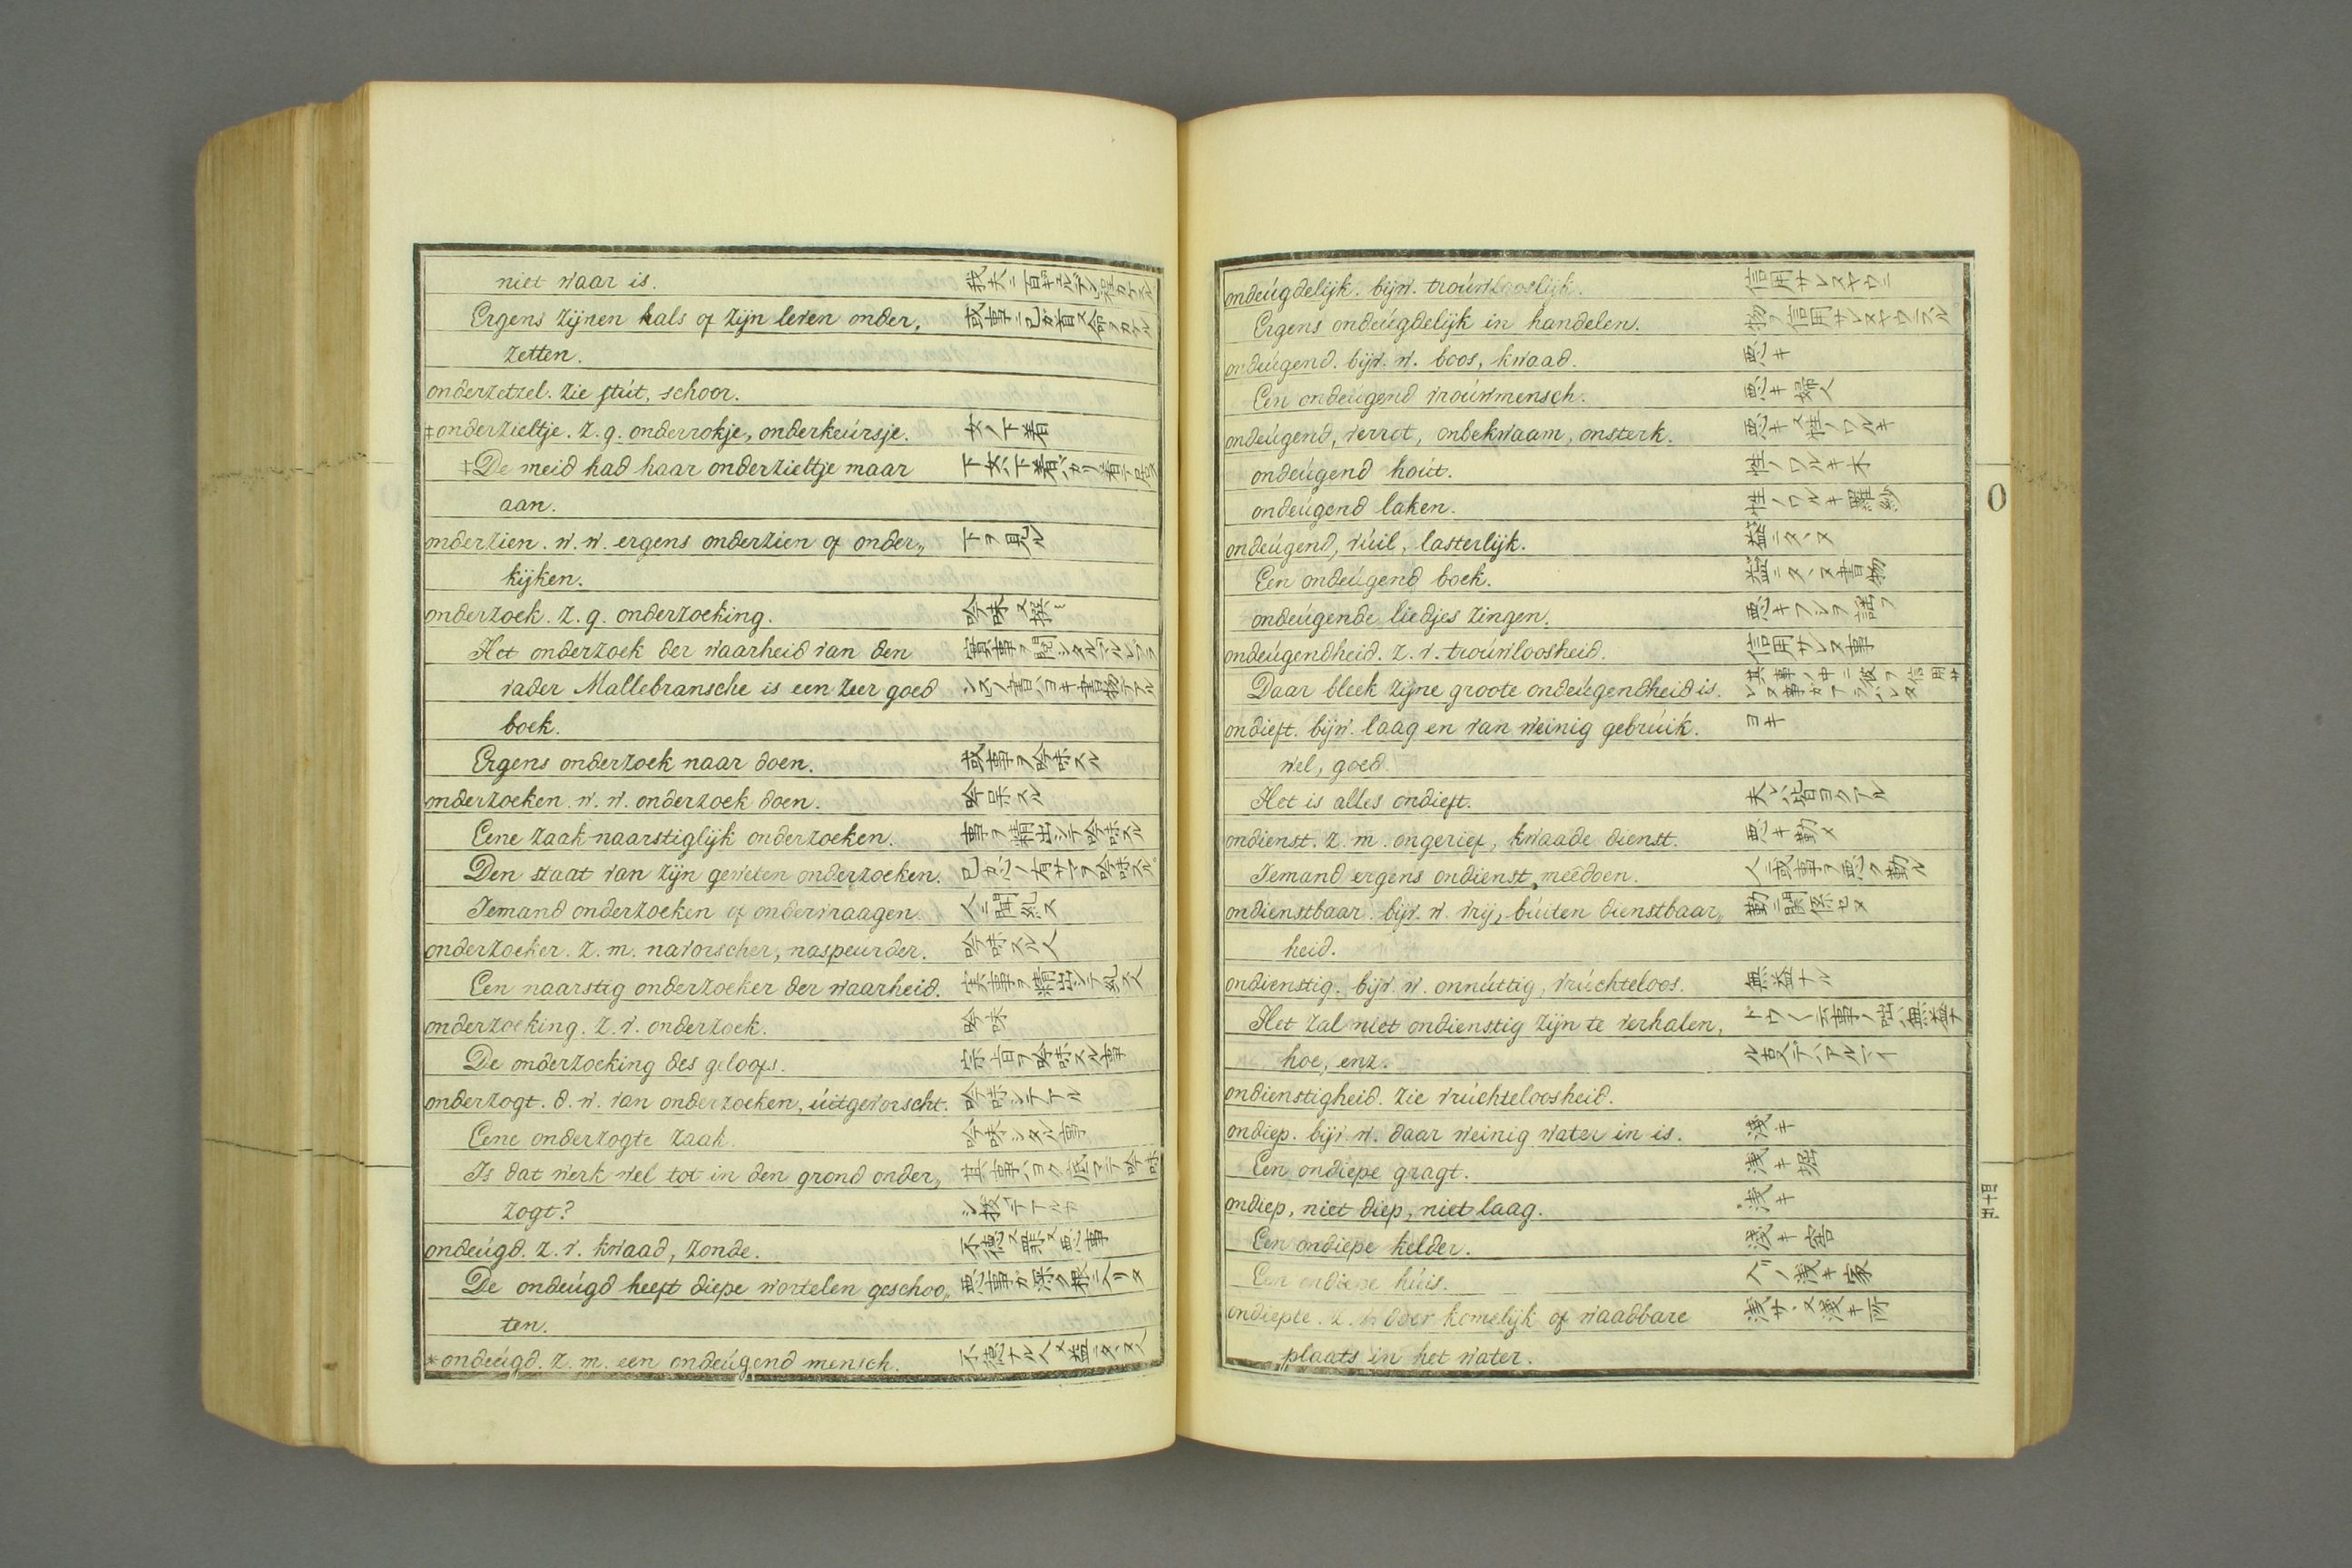 niet waar is.
Ergens zijnen hals of zijn leven onder„ 或事ニ己ガ首又命ヲカケル
zetten.
onderzetzel. zie stút, schoor.
‡onderzieltje. z. g. onderrokje, onderkeúrsje. 女ノ下着
‡De meid had haar onderzieltje maar 下女ハ下着バカリ着テ居ル
aan.
onderzien. w. w. ergens onderzien of onder„ 下ヲ見ル
kijken.
onderzoek. z. g. onderzoeking. 吟味又撰ミ
Het onderzoek der waarheid van den
vader Mallebransche is een zeer goed
boek.
Ergens onderzoek naar doen. 或事ヲ吟味スル
onderzoeken. w. w. onderzoek doen. 吟味スル
Eene zaak naarstiglijk onderzoeken. 事ヲ精出シテ吟味スル
Den staat van zijn geweten onderzoeken. 己ガ心ノ有サマヲ吟味スル
Iemand onderzoeken of ondervraagen. 人ニ聞糺ス
onderzoeker. z. m. navorscher, naspeurder. 吟味スル人
Een naarstig onderzoeker der waarheid. 実事ヲ精出シテ糺ス人
onderzoeking. z. v. onderzoek. 吟味
De onderzoeking des geloofs. 宗旨ヲ吟味スル事
onderzogt. d. w. van onderzoeken, úitgevorscht. 吟味シテアル
Eene onderzogte zaak. 吟味シタル事
Is dat werk wel tot in den grond onder„ 其事ハヨク底マテ吟味
zogt? シ扱テアルカ
ondeúgd. z. v. kwaad, zonde. 不徳又罪又悪事
De ondeúgd heeft diepe wortelen geschoo„ 悪事ガ深ク根ニ入リタ
ten.
*ondeúgd. z. m. een ondeúgend mensch. 不徳ナル人又益ニタヽヌ人
ondeúgdelijk. bijw. troúwlooslijk. 信用サレヌヤウニ
Ergens ondeúgdelijk in handelen. 物ヲ信用サレヌヤウニスル
ondeúgend. bijv. w. boos, kwaad. 悪キ
Een ondeúgend vroúwmensch. 悪キ婦人
ondeúgend, verrot, onbekwaam, onsterk. 悪キ又性ノワルキ
ondeúgend hoút. 性ノワルキ木
ondeúgend laken. 性ノワルキ羅紗
ondeúgend, vúil, lasterlijk. 益ニタヽヌ
Een ondeúgend boek. 益ニタヽヌ書物
ondeúgende liedjes zingen. 悪キフシヲ謡フ
ondeúgendheid. z. v. troúwloosheid. 信用サレヌ事
Daar bleek zijne groote ondeúgendheid is. 其事ノ中ニ彼ヲ信用サレヌ事ガアラハレタ
ondieft. bijw. laag en van weinig gebrúik. ヨキ
wel, goed.
Het is alles ondieft. 夫レハ皆ヨクアル
ondienst. z. m. ongerief, kwaade dienst. 悪キ勤メ
Iemand ergens ondienst meêdoen. 人ニ或事ヲ悪ク勤ル
ondienstbaar. bijv. w. vrij, búiten dienstbaar„ 勤ニ関係セヌ
heid.
ondienstig. bijv. w. onnúttig, vrúchteloos. 無益ナル
Het zal niet ondienstig zijn te verhalen,
hoe, enz.
ondienstigheid. zie vrúchteloosheid.
ondiep. bijv. w. daar weinig water in is. 浅キ
Een ondiepe gragt. 浅キ堀
ondiep, niet diep, niet laag. 浅キ
Een ondiepe kelder. 浅キ窖
Een ondiepe húis. 浅キ家
ondiepte. z. v. door komelijk of waadbare 浅サ、又浅キ所
plaats in het water.
O
四十五